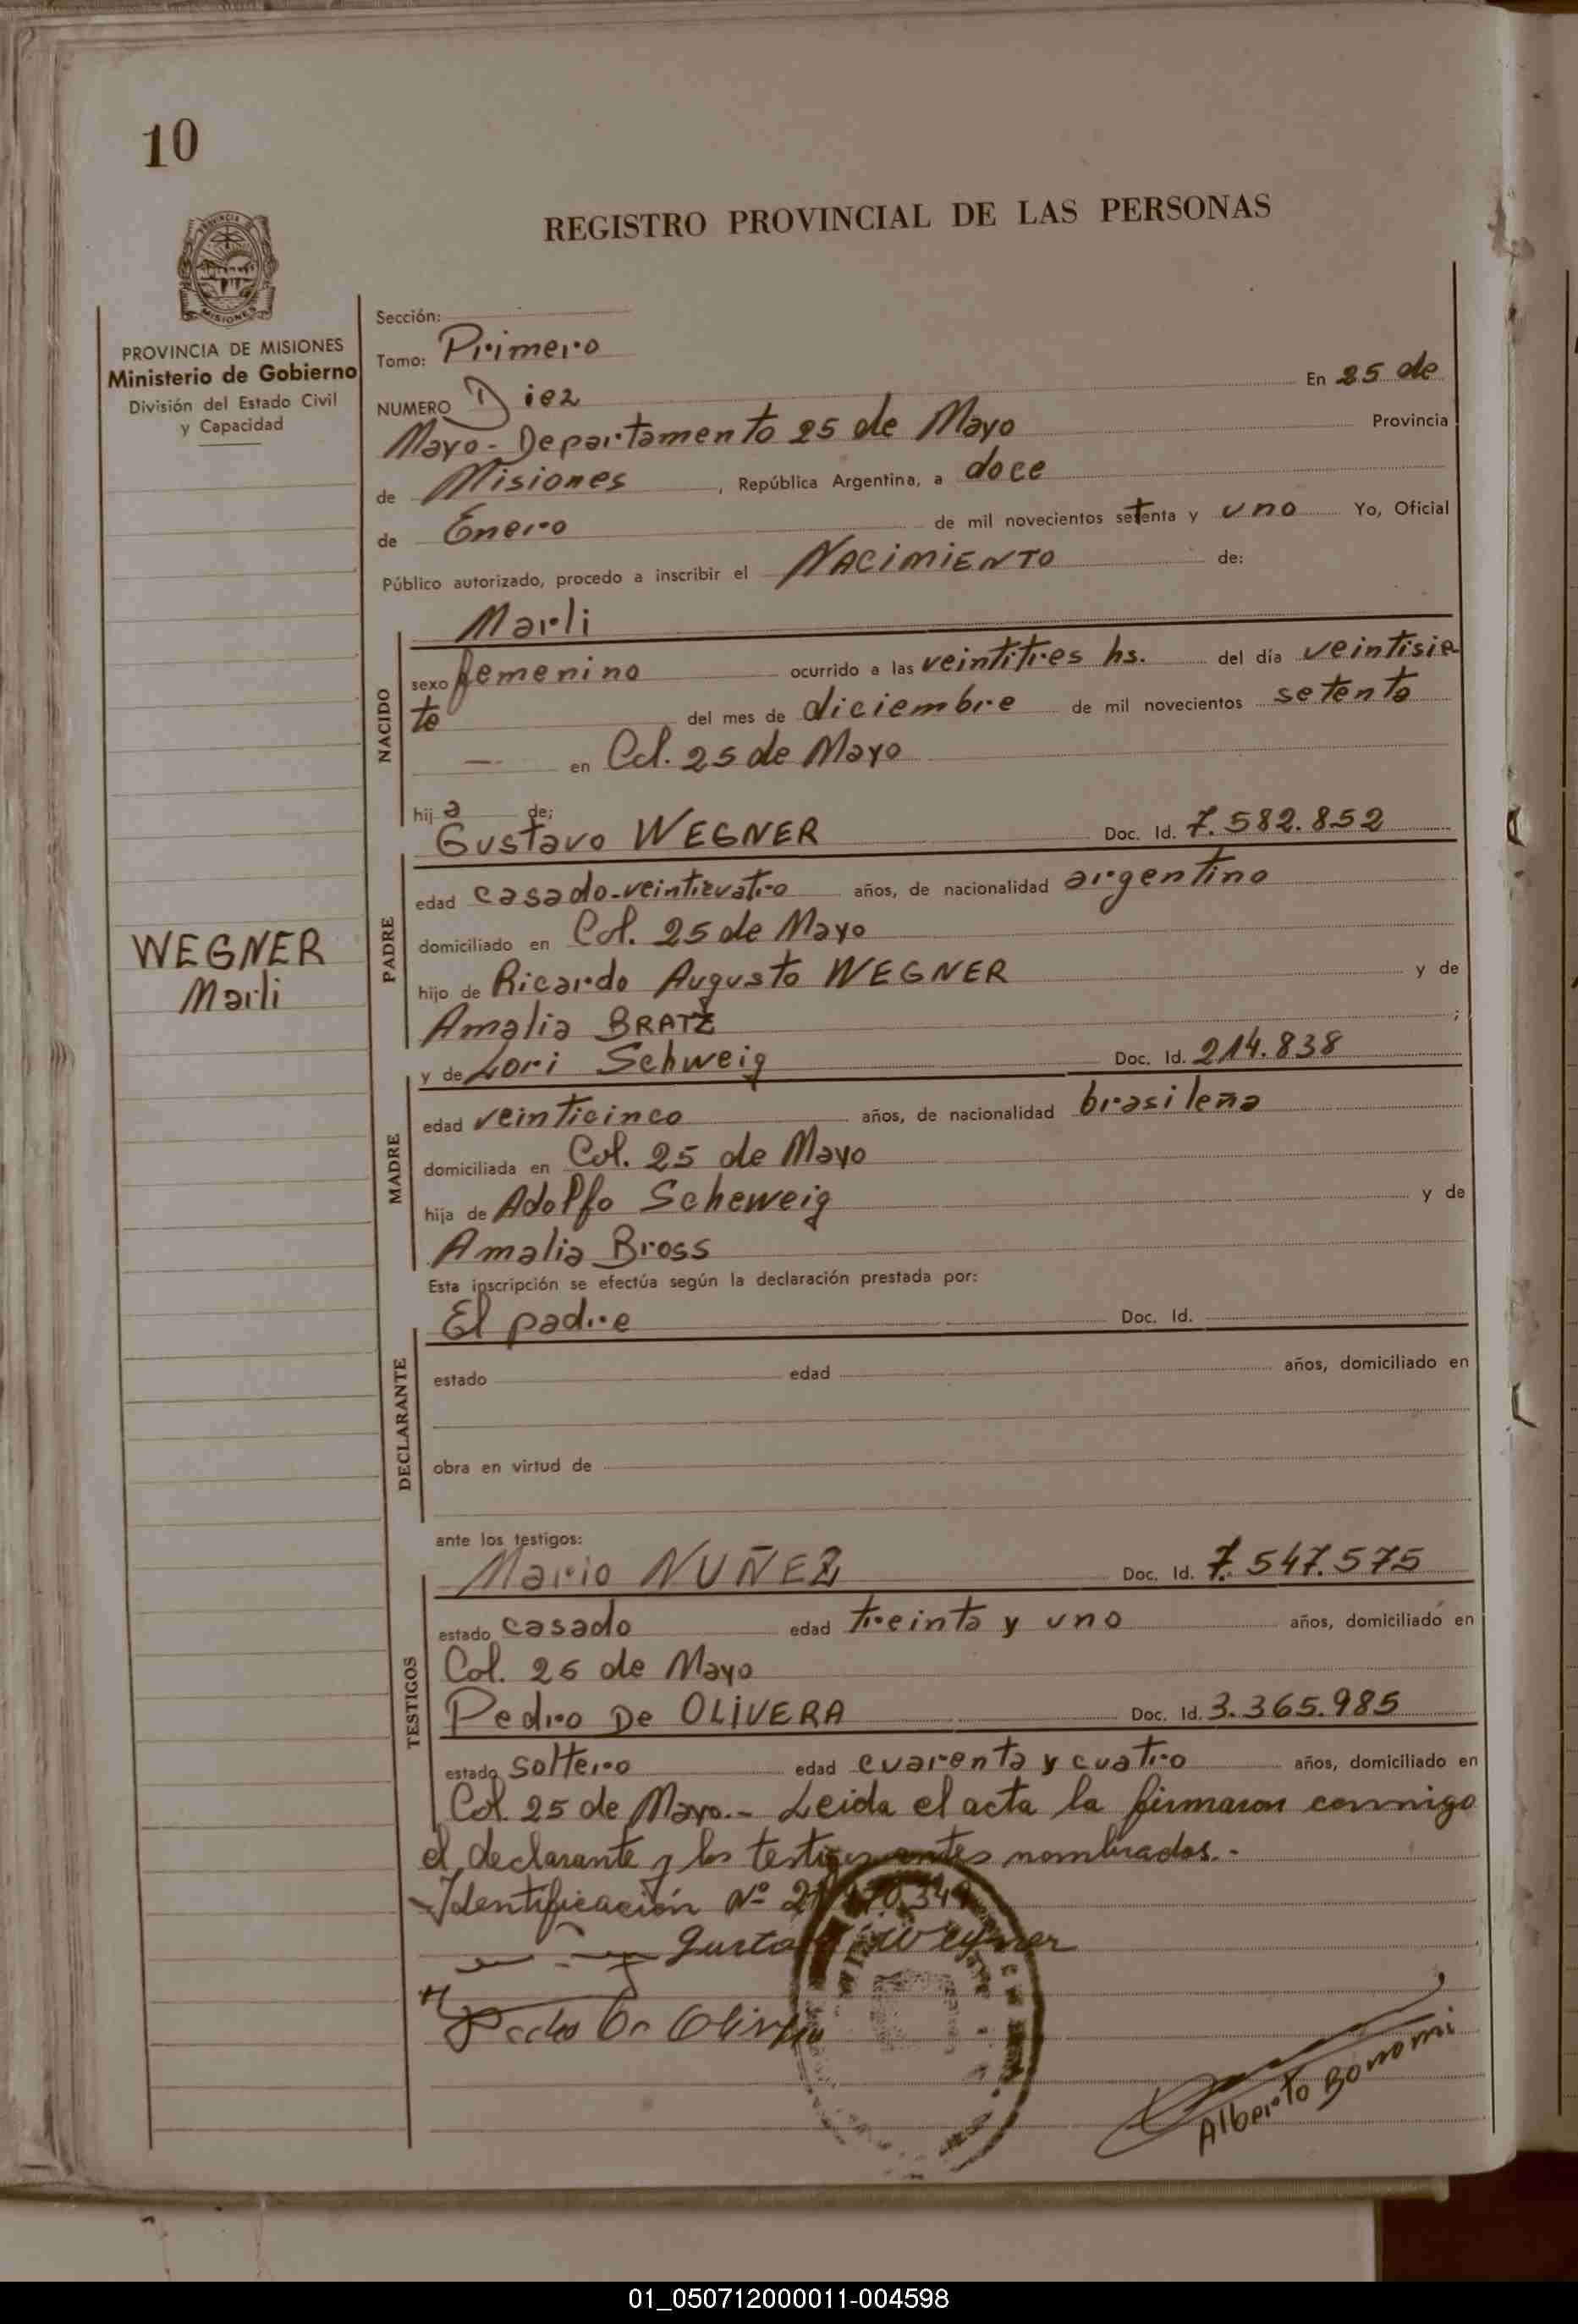 10
REGISTRO PROVINCIAL DE LAS PERSONAS
MISIONES
PROVINCIA DE MISIONES
Ministerio de Gobierno
División del Estado Civil
y Capacidad
Sección:
Tomo: Primero
NUMERO Diez En 25 de
Mayo - Departamento 25 de Mayo Provincia
de Misiones, República Argentina, a doce
de Enero de mil novecientos setenta y uno Yo, Oficial
Público autorizado, procedo a inscribir el NACIMIENTO de:
NACIDO
Marli
sexo femenino ocurrido a las veintitres hs. del día veintisie
te del mes de diciembre de mil novecientos setenta
— en Col. 25 de Mayo
hija de;
Gustavo WEGNER Doc. Id. 7.582.852
PADRE
edad casado-veinticuatro años, de nacionalidad argentino
domiciliado en Col. 25 de Mayo
WEGNER
Marli
hijo de Ricardo Augusto WEGNER y de
Amalia BRATZ ;
y de Lori Schweig Doc. Id. 214.838
MADRE
edad veinticinco años, de nacionalidad brasileña
domiciliada en Col. 25 de Mayo
hija de Adolfo Scheweig y de
Amalia Bross
Esta inscripción se efectúa según la declaración prestada por:
El padre Doc. Id.
DECLARANTE
estado edad años, domiciliado en
obra en virtud de
ante los testigos:
Mario NUÑEZ Doc. Id. 7.547.575
TESTIGOS
estado casado edad treinta y uno años, domiciliado en
Col. 25 de Mayo
Pedro De OLIVERA Doc. Id. 3.365.985
estado soltero edad cuarenta y cuatro años, domiciliado en
Col. 25 de Mayo.- Leida el acta la firmaron conmigo
el declarante y los testigos antes nombrados.-
Identificación Nº
Gustavo Wegner
Pedro De Olivera
Alberto Bonomi
01_050712000011-004598